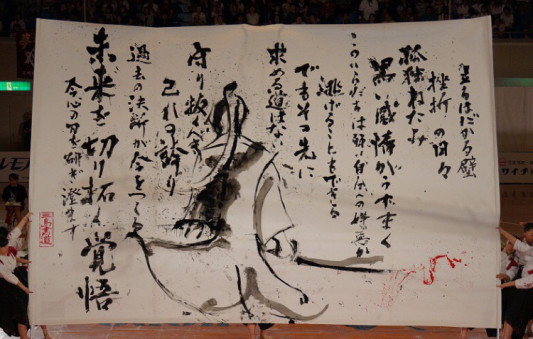 立ちはだかる壁
挫折の日々
孤独ねたみ
黒い感情がうずまく
このいらだちは弱い自分への嫌悪か
逃げることもできる
でもその先に
求める道はない
守り抜く
己れの誇り
過去の決断が今をつくる
未来を切り拓く覚悟
今心の刃を研ぎ澄ます